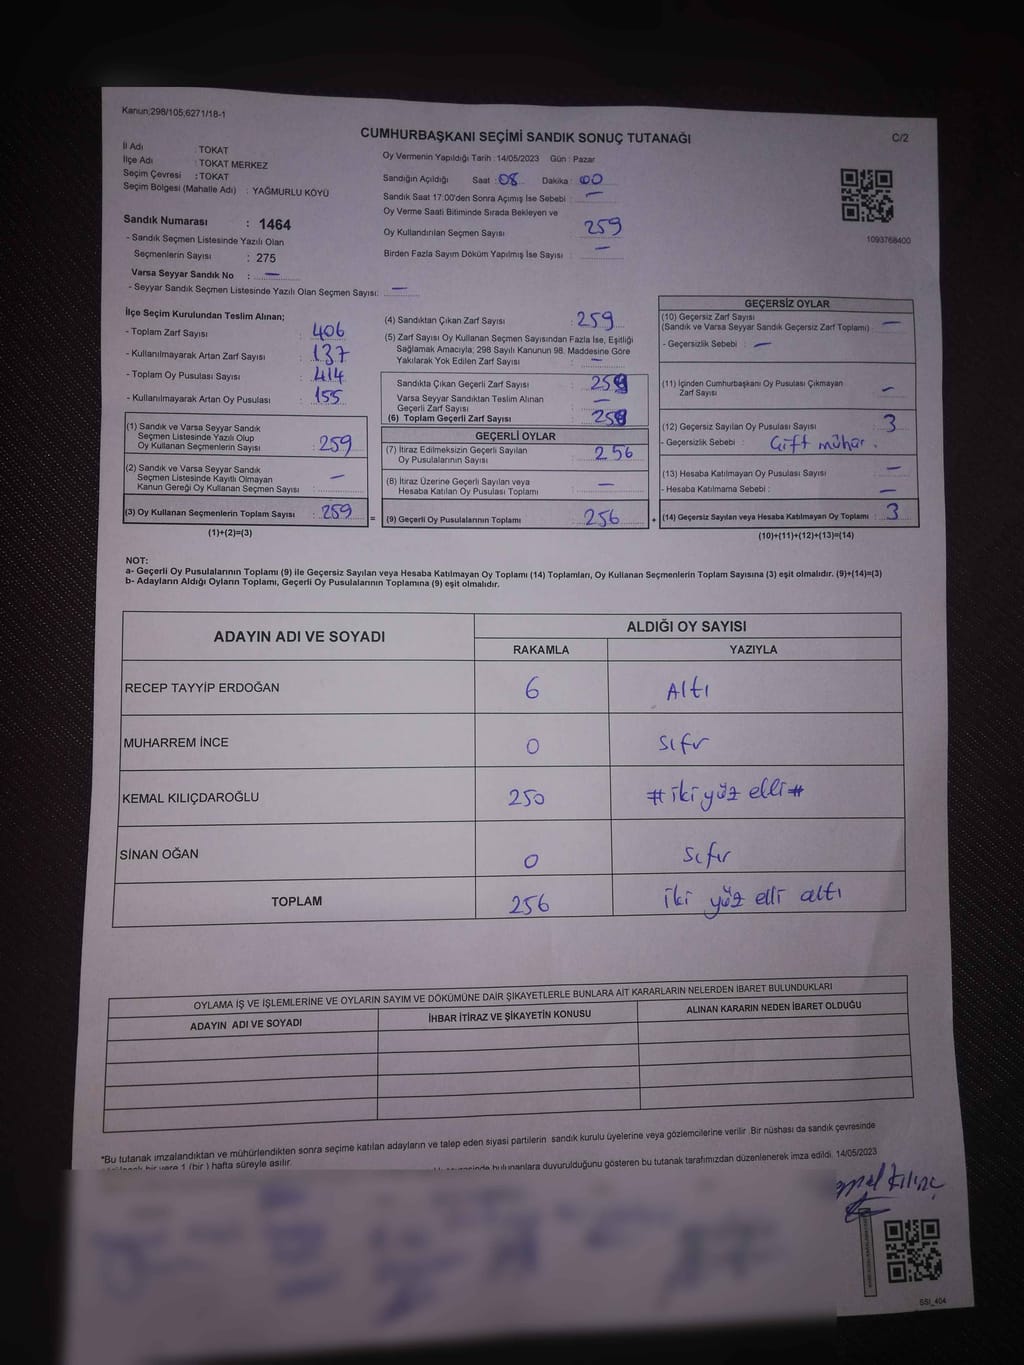 Kanun;298/105,6271/18-1
CUMHURBAŞKANI SEÇİMİ SANDIK SONUÇ TUTANAĞI
C/2
İl Adı : TOKAT
İlçe Adı : TOKAT MERKEZ
Seçim Çevresi : TOKAT
Seçim Bölgesi (Mahalle Adı) : YAĞMURLU KÖYÜ
Sandık Numarası : 1464
- Sandık Seçmen Listesinde Yazılı Olan
Seçmenlerin Sayısı : 275
Varsa Seyyar Sandık No : —
- Seyyar Sandık Seçmen Listesinde Yazılı Olan Seçmen Sayısı: —
Oy Vermenin Yapıldığı Tarih : 14/05/2023 Gün : Pazar
Sandığın Açıldığı Saat : 08 Dakika : 00
Sandık Saat 17:00'den Sonra Açımış İse Sebebi : —
Oy Verme Saati Bitiminde Sırada Bekleyen ve
Oy Kullandırılan Seçmen Sayısı : 259
Birden Fazla Sayım Döküm Yapılmış İse Sayısı : —
1093768400
İlçe Seçim Kurulundan Teslim Alınan;
- Toplam Zarf Sayısı : 406
- Kullanılmayarak Artan Zarf Sayısı : 137
- Toplam Oy Pusulası Sayısı : 414
- Kullanılmayarak Artan Oy Pusulası : 155
(1) Sandık ve Varsa Seyyar Sandık
Seçmen Listesinde Yazılı Olup
Oy Kullanan Seçmenlerin Sayısı : 259
(2) Sandık ve Varsa Seyyar Sandık
Seçmen Listesinde Kayıtlı Olmayan
Kanun Gereği Oy Kullanan Seçmen Sayısı : —
(3) Oy Kullanan Seçmenlerin Toplam Sayısı : 259
(1)+(2)=(3)
(4) Sandıktan Çıkan Zarf Sayısı : 259
(5) Zarf Sayısı Oy Kullanan Seçmen Sayısından Fazla İse, Eşitliği
Sağlamak Amacıyla; 298 Sayılı Kanunun 98. Maddesine Göre
Yakılarak Yok Edilen Zarf Sayısı : —
Sandıkta Çıkan Geçerli Zarf Sayısı : 259
Varsa Seyyar Sandıktan Teslim Alınan
Geçerli Zarf Sayısı : —
(6) Toplam Geçerli Zarf Sayısı : 259
GEÇERLİ OYLAR
(7) İtiraz Edilmeksizin Geçerli Sayılan
Oy Pusulalarının Sayısı : 256
(8) İtiraz Üzerine Geçerli Sayılan veya
Hesaba Katılan Oy Pusulası Toplamı : —
= (9) Geçerli Oy Pusulalarının Toplamı : 256 +
GEÇERSİZ OYLAR
(10) Geçersiz Zarf Sayısı
(Sandık ve Varsa Seyyar Sandık Geçersiz Zarf Toplamı) : —
- Geçersizlik Sebebi : —
(11) İçinden Cumhurbaşkanı Oy Pusulası Çıkmayan
Zarf Sayısı : —
(12) Geçersiz Sayılan Oy Pusulası Sayısı : 3
- Geçersizlik Sebebi : Çift mühür.
(13) Hesaba Katılmayan Oy Pusulası Sayısı : —
- Hesaba Katılmama Sebebi : —
(14) Geçersiz Sayılan veya Hesaba Katılmayan Oy Toplamı : 3
(10)+(11)+(12)+(13)=(14)
NOT:
a- Geçerli Oy Pusulalarının Toplamı (9) ile Geçersiz Sayılan veya Hesaba Katılmayan Oy Toplamı (14) Toplamları, Oy Kullanan Seçmenlerin Toplam Sayısına (3) eşit olmalıdır. (9)+(14)=(3)
b- Adayların Aldığı Oyların Toplamı, Geçerli Oy Pusulalarının Toplamına (9) eşit olmalıdır.
ADAYIN ADI VE SOYADI ALDIĞI OY SAYISI
RAKAMLA YAZIYLA
RECEP TAYYİP ERDOĞAN 6 Altı
MUHARREM İNCE 0 sıfır
KEMAL KILIÇDAROĞLU 250 # iki yüz elli #
SİNAN OĞAN 0 Sıfır
TOPLAM 256 iki yüz elli altı
OYLAMA İŞ VE İŞLEMLERİNE VE OYLARIN SAYIM VE DÖKÜMÜNE DAİR ŞİKAYETLERLE BUNLARA AİT KARARLARIN NELERDEN İBARET BULUNDUKLARI
ADAYIN ADI VE SOYADI İHBAR İTİRAZ VE ŞİKAYETİN KONUSU ALINAN KARARIN NEDEN İBARET OLDUĞU
*Bu tutanak imzalandıktan ve mühürlendikten sonra seçime katılan adayların ve talep eden siyasi partilerin sandık kurulu üyelerine veya gözlemcilerine verilir .Bir nüshası da sandık çevresinde
bir yere 1 (bir ) hafta süreyle asılır.
bulunanlara duyurulduğunu gösteren bu tutanak tarafımızdan düzenlenerek imza edildi. 14/05/2023
SSI_404